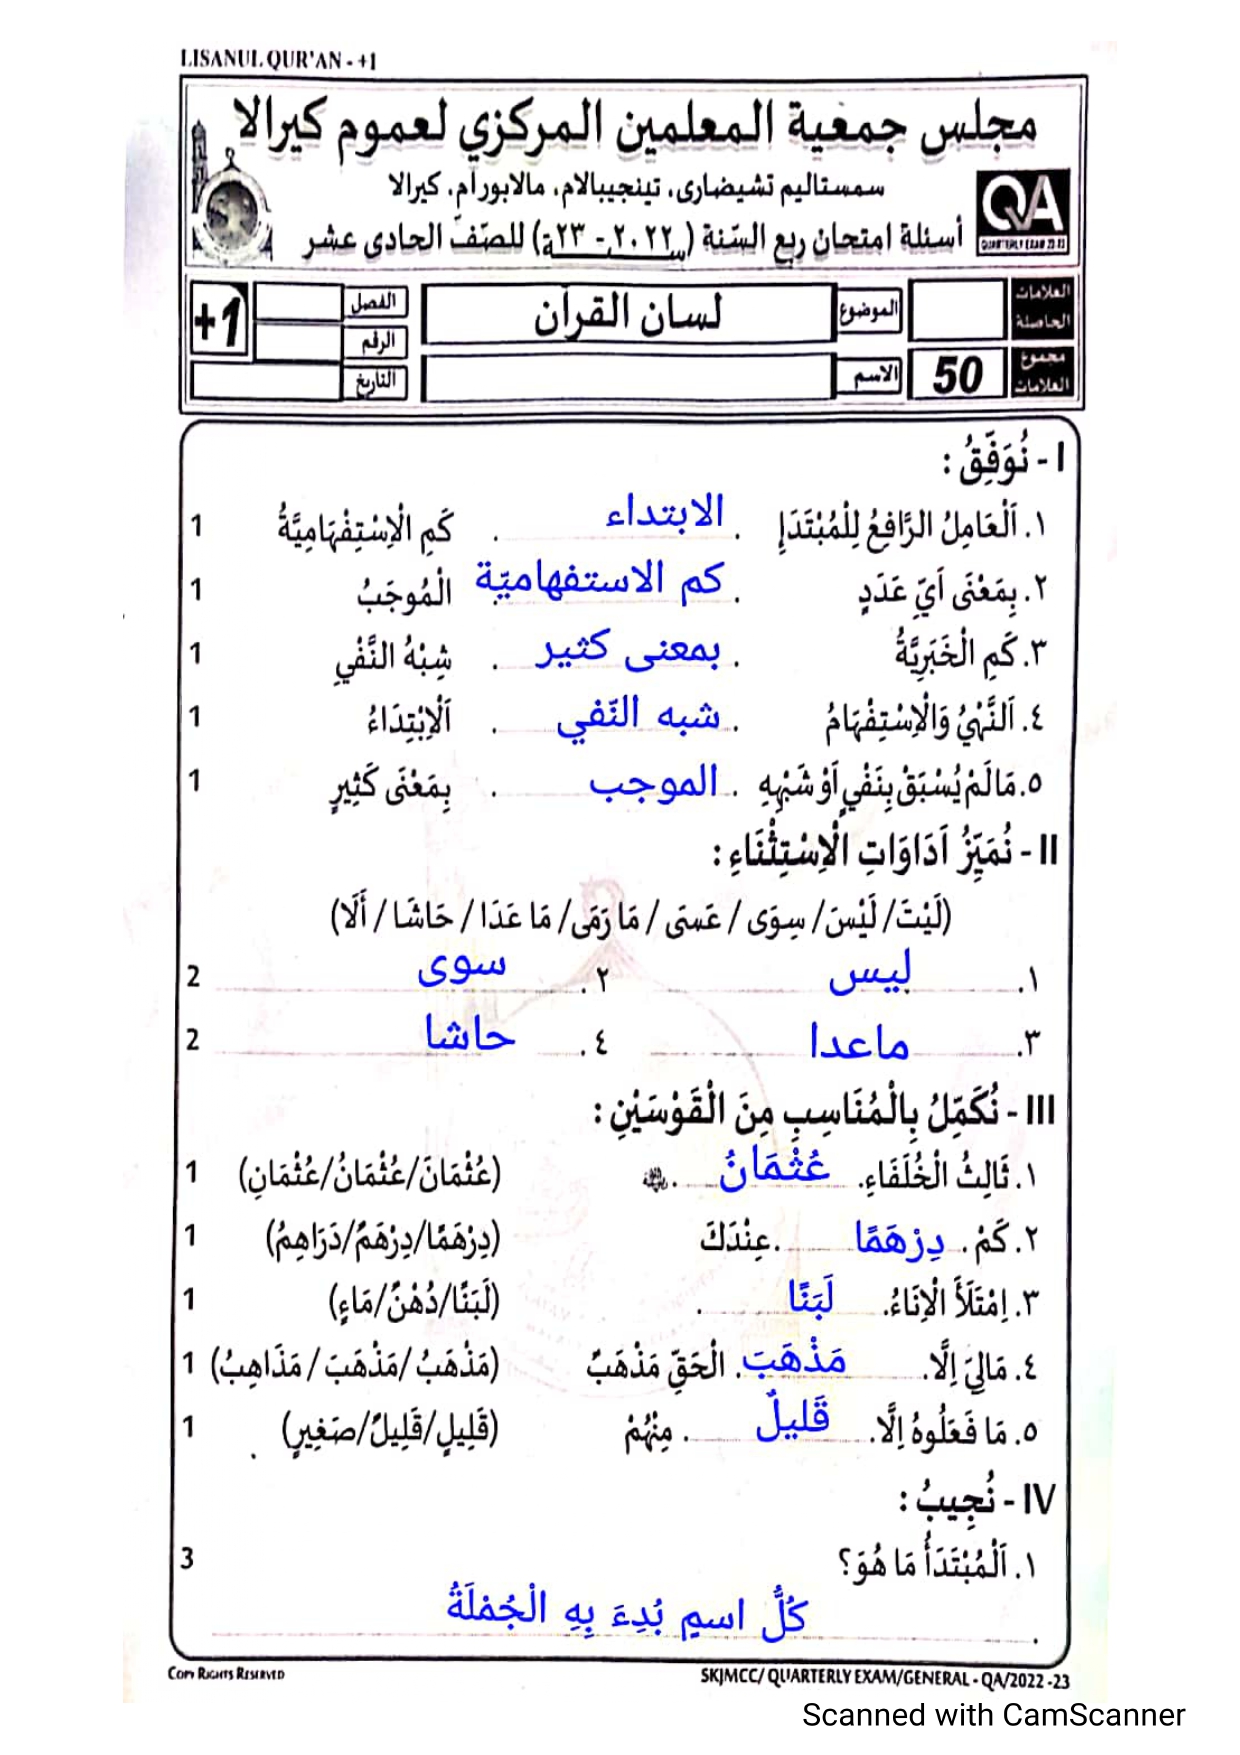 LISANUL QUR'AN - +1
مجلس جمعية المعلمين المركزي لعموم كيرالا
سمستاليم تشيضارى، تينجيبالام، مالابورام، كيرالا
أسئلة امتحان ربع السّنة (٢٠٢٢ - ٢٣ة) للصّفّ الحادى عشر
QA
QUARTERLY EXAM 22-23
العلامات الحاصلة
الموضوع
لسان القرآن
الفصل
الرقم
+1
مجموع العلامات
50
الاسم
التاريخ
I - نُوَفِّقُ :
١. اَلْعَامِلُ الرَّافِعُ لِلْمُبْتَدَإِ . الابتداء . كَمِ الْاِسْتِفْهَامِيَّةُ 1
٢. بِمَعْنَى اَيِّ عَدَدٍ . كم الاستفهاميّة . الْمُوجَبُ 1
٣. كَمِ الْخَبَرِيَّةُ . بمعنى كثير . شِبْهُ النَّفْيِ 1
٤. اَلنَّهْيُ وَالْاِسْتِفْهَامُ . شبه النّفي . اَلْاِبْتِدَاءُ 1
٥. مَا لَمْ يُسْبَقْ بِنَفْيٍ اَوْ شَبْهِهِ . الموجب . بِمَعْنَى كَثِيرٍ 1
II - نُمَيِّزُ اَدَاوَاتِ الْاِسْتِثْنَاءِ :
(لَيْتَ/ لَيْسَ/ سِوَى/ عَسَى/ مَا رَمَى/ مَا عَدَا/ حَاشَا/ أَلَا)
١. ليس ٢. سوى 2
٣. ماعدا ٤. حاشا 2
III - نُكَمِّلُ بِالْمُنَاسِبِ مِنَ الْقَوْسَيْنِ :
١. ثَالِثُ الْخُلَفَاءِ. عُثْمَانُ . (عُثْمَانَ/عُثْمَانُ/عُثْمَانِ) 1
٢. كَمْ . دِرْهَمًا .عِنْدَكَ (دِرْهَمًا/دِرْهَمٌ/دَرَاهِمُ) 1
٣. اِمْتَلَأَ الْاِنَاءُ. لَبَنًا . (لَبَنًا/دُهْنٌ/مَاءٍ) 1
٤. مَالِيَ اِلَّا. مَذْهَبَ . الْحَقِّ مَذْهَبٌ (مَذْهَبُ/مَذْهَبَ/مَذَاهِبُ) 1
٥. مَا فَعَلُوهُ اِلَّا. قَلِيلٌ . مِنْهُمْ (قَلِيلٍ/قَلِيلٌ/صَغِيرٍ) 1
IV - نُجِيبُ :
١. اَلْمُبْتَدَأُ مَا هُوَ؟ 3
كُلُّ اسمٍ بُدِءَ بِهِ الْجُمْلَةُ
COPY RIGHTS RESERVED
SKJMCC/ QUARTERLY EXAM/GENERAL - QA/2022 -23
Scanned with CamScanner